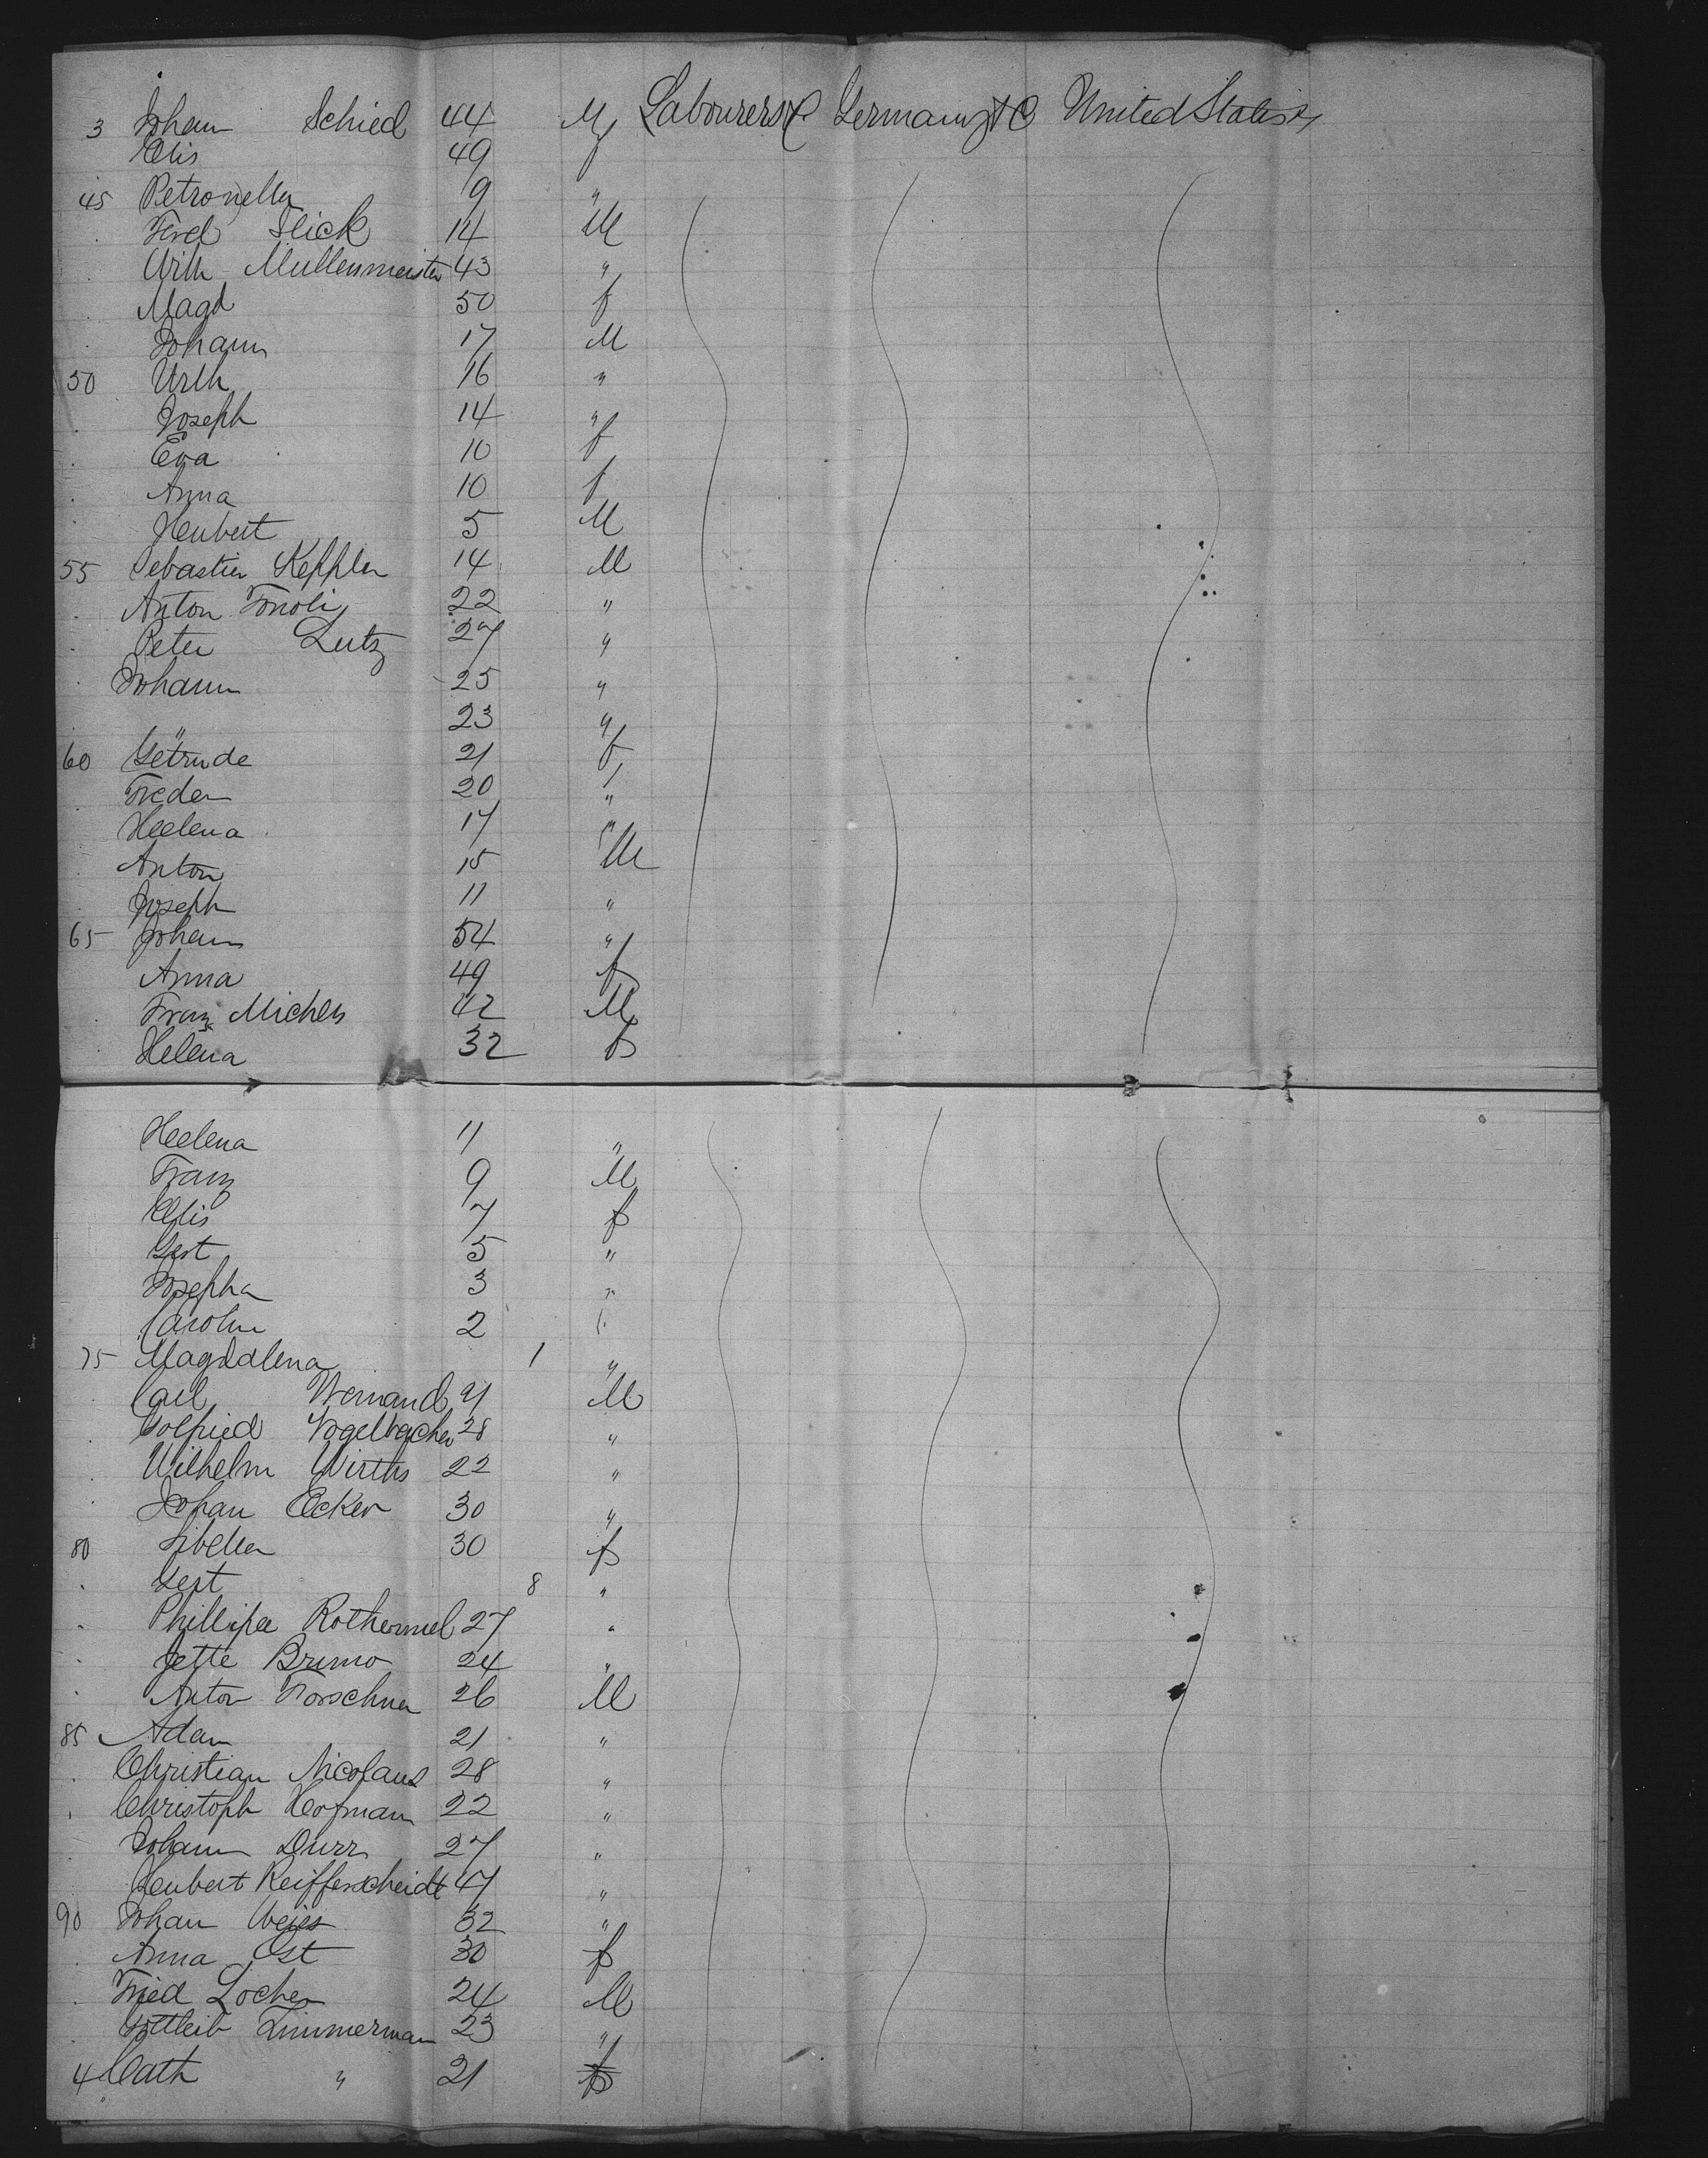 3 Johann Schied 44 M Labourers & Germany &c United States
Elis 49 f
45 Petronella 9 "
Ferd Flick 14 M
Wilh Mullenmeister 43 "
Magd 50 f
Johann 17 M
50 Wilh 16 "
Joseph 14 "
Eva 10 f
Anna 10 f
Heubert 5 M
55 Sebastien Keppler 14 M
Anton 22 "
Peter Lutz 27 "
Johann 25 "
" 23 "
60 Getrude 21 f
Freder 20 "
Heelena 17 "
Anton 15 M
Joseph 11 "
65 Johann 54 "
Anna 49 f
Franz Michels 42 M
Helena 32 f
Heelena 11 "
Franz 9 M
Elis 7 f
Gert 5 "
Josepha 3 "
Carolin 2 "
75 Magdalena 1 "
Carl Weinand 21 M
Golfried Vogelbacher 28 "
Wilhelm Wirths 22 "
Johan Ecker 30 "
80 Sibella 30 f
Gert 8 "
Phillipa Rothermel 27 "
Jette Bruno 24 "
Anton Forschner 26 M
85 Adam 21 "
Christian Nicolaus 28 "
Christoph Hofman 22 "
Johann Durr 27 "
Heubert Reifferscheidt 47 "
90 Johan Weies 32 "
Anna Ost 30 f
Fried Locher 24 M
Gottleib Zimmerman 23 "
4 Cath " 21 f